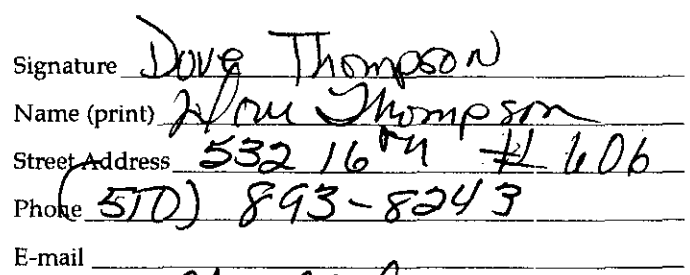 Signature Dove Thompson
Name (print) Dove Thompson
Street Address 532 16th # 606
Phone (510) 893-8243
E-mail